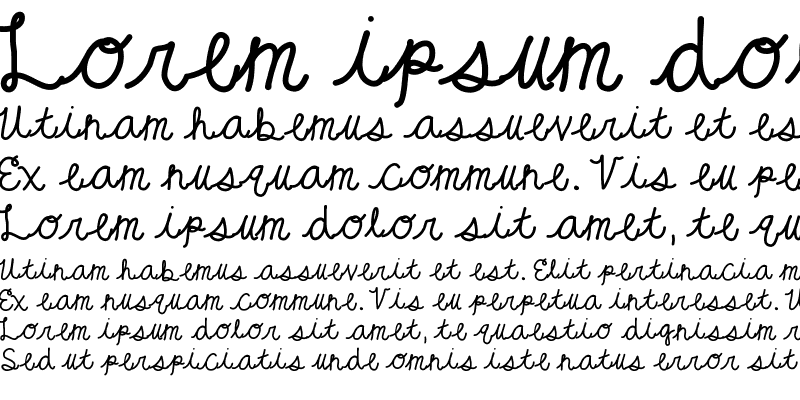 Lorem ipsum do
Utinam habemus assueverit et es
Ex eam nusquam commune. Vis eu pe
Lorem ipsum dolor sit amet, te qu
Utinam habemus assueverit et est. Elit pertinacia m
Ex eam nusquam commune. Vis eu perpetua interesset. U
Lorem ipsum dolor sit amet, te quaestio dignissim r
Sed ut perspiciatis unde omnis iste natus error sit